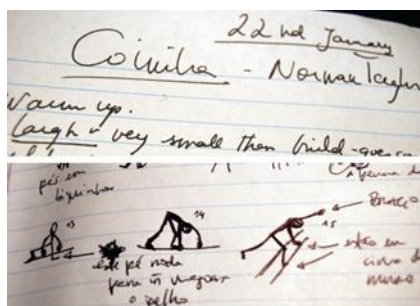 22nd January
Coimbra - Norman Taylor
Warm up.
Laugh - very small then build
pés em
biquinhos
13
14
15
BRAÇO
este pé roda
para ñ magoar
o joelho
estão em
cima do
mesmo